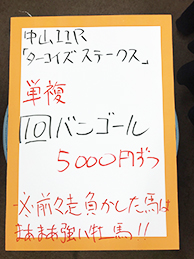 中山11R
「ターコイズステークス」
単複
10 バンゴール
5000円ずつ
※前々走負かした馬は
まあまあ強い牡馬!!